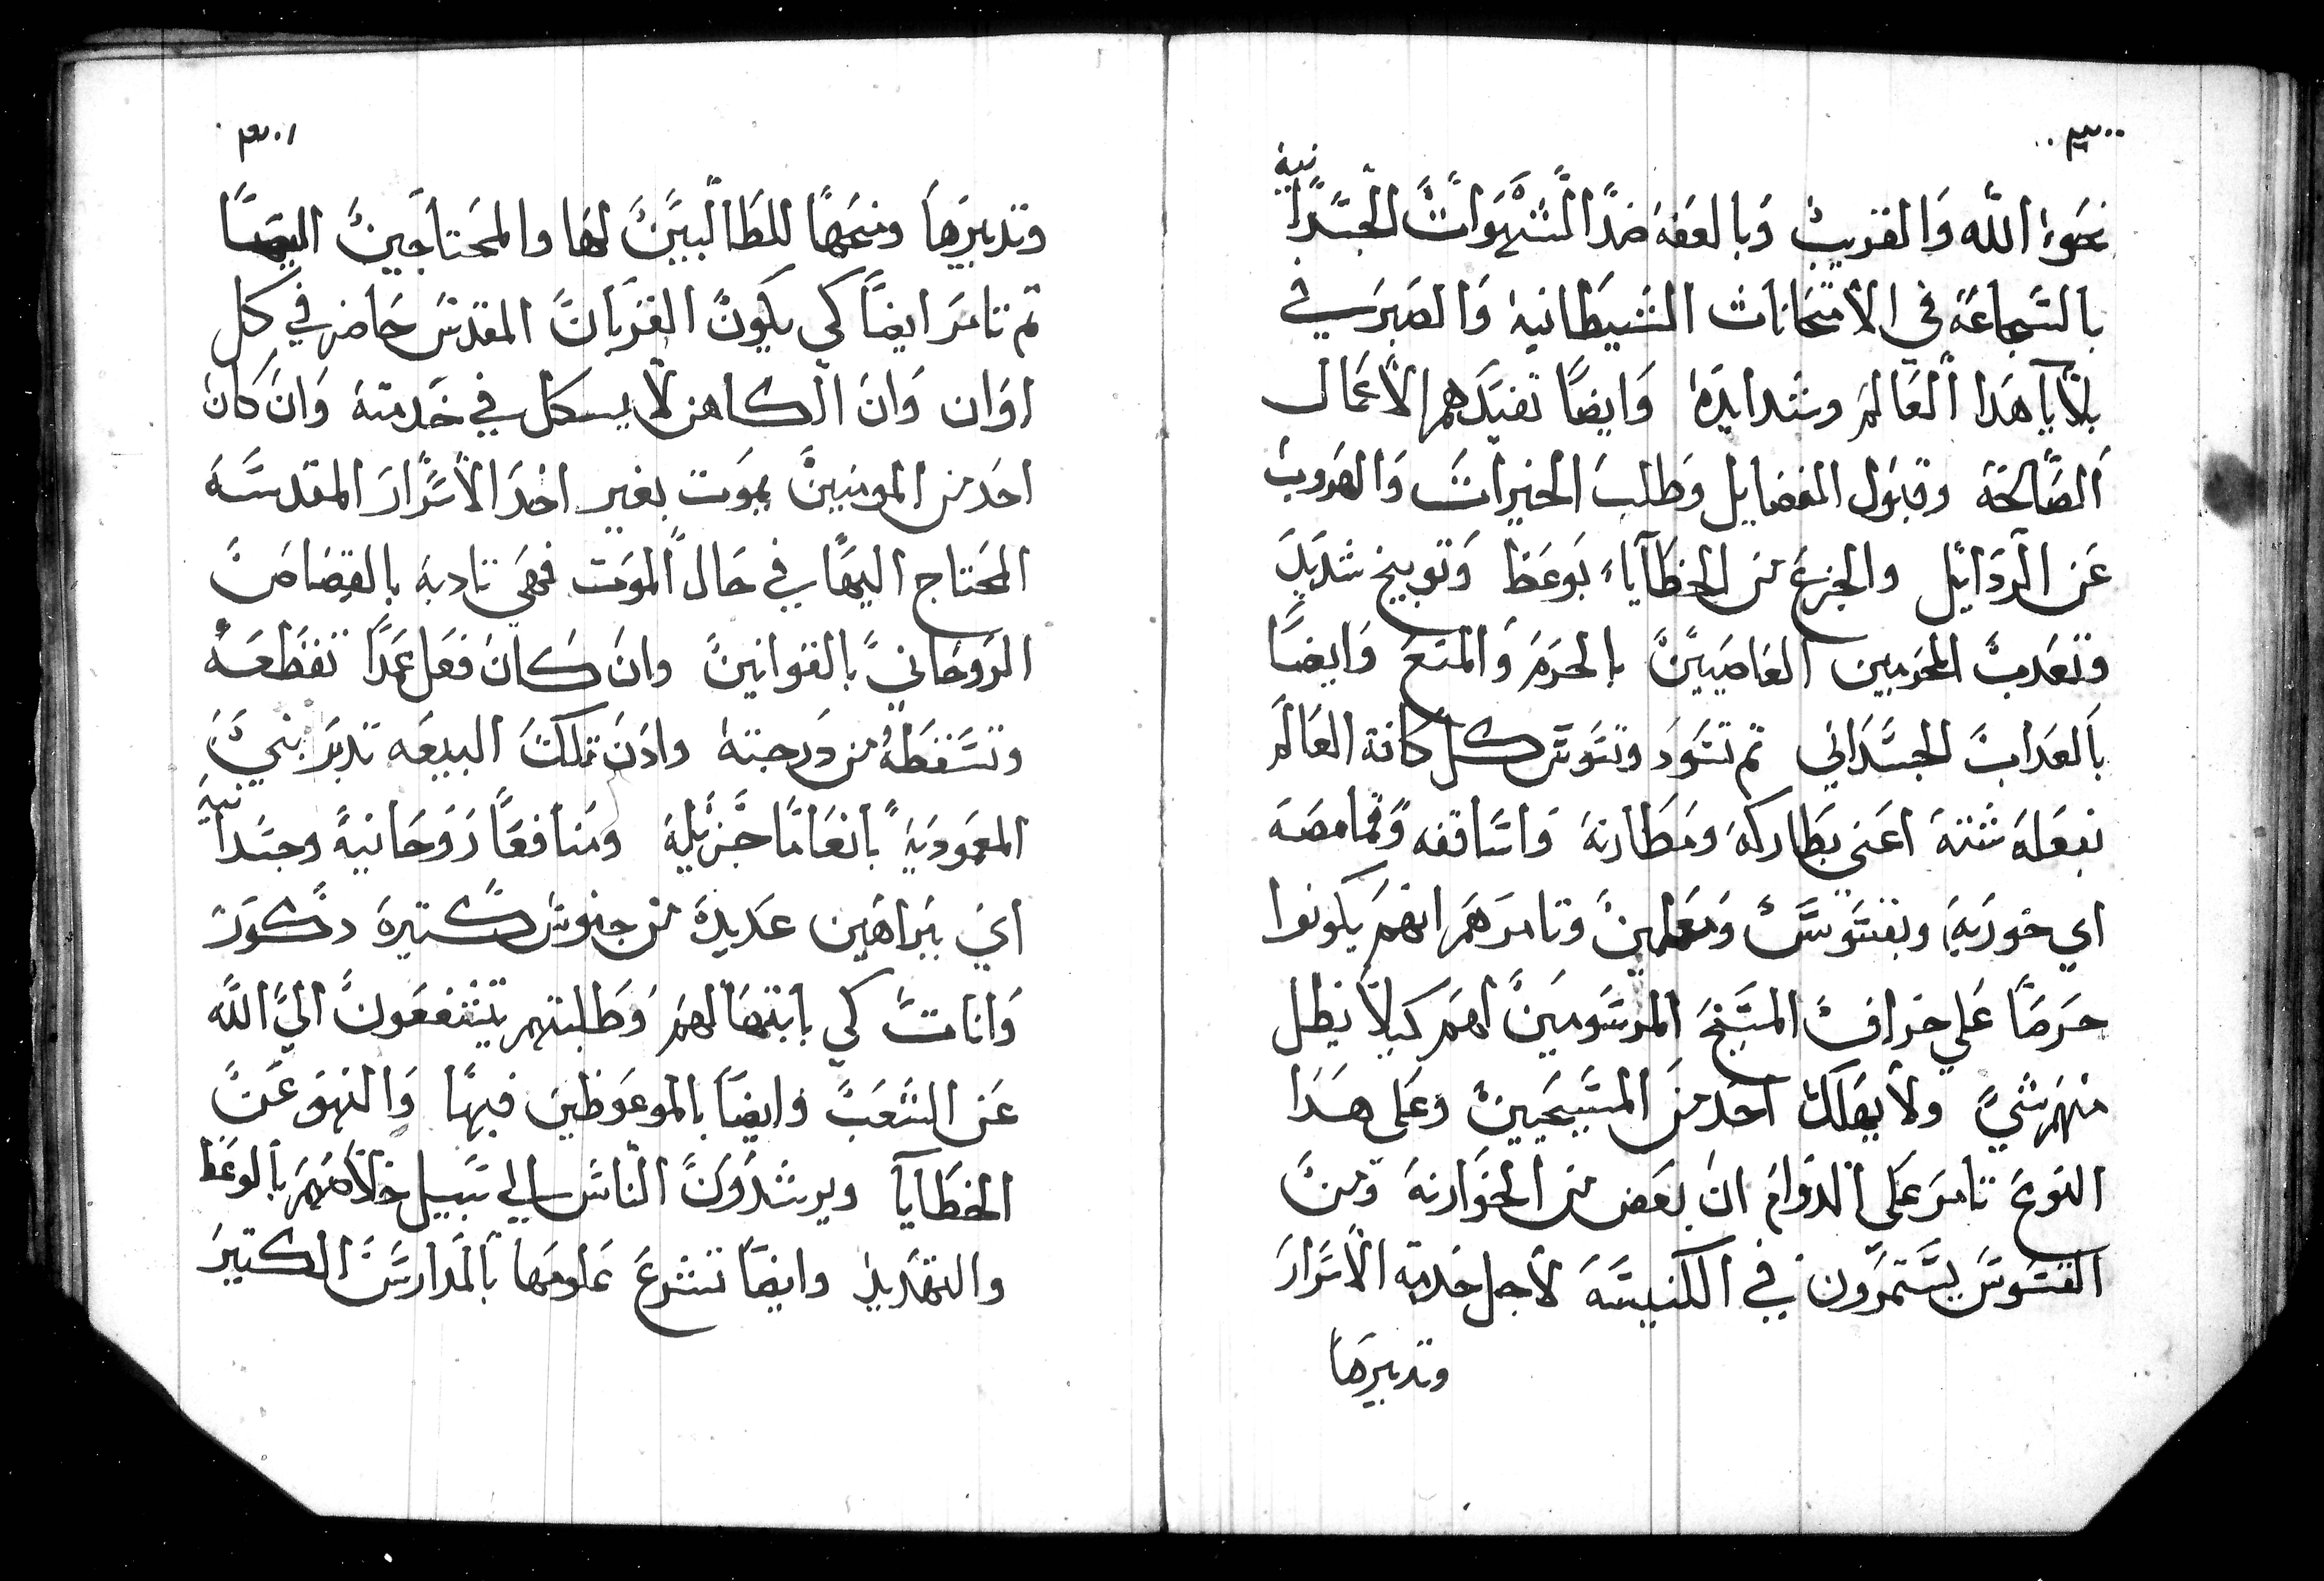 ٣٠٠
نحو الله والقريب وبالعفه ضد الشهوات الجسدانيه
بالشجاعة في الامتحانات الشيطانيه والصبر في
بلايا هذا العالم وشدايده وايضًا تفيدهم الاعمال
الصالحة وقبول الفضايل وطلب الخيرات والهروب
عن الردايل والجزع من الخطاياء بوعظ وتوبيخ شديد
وتعدب المجرمين العاصيين بالحرم والمنع وايضًا
بالعداب الجسداني تم تسود وتسوس كل كافة العالم
بفعله شتنة اعني بطاركه ومطارنة واساقفه وقمامصة
اي خوريه وبقسوس ومعلمين وتامرهم انهم يكونوا
حرصًا علي خراف المسيح المرسومين لهم كيلا يظل
منهم شي ولا يهلك احد من المسيحيين وعلي هذا
النوع تامر علي الدوام ان بعض من الخوارنه ومن
القسوس يستمرون في الكنيسة لاجل خدمة الاسرار
وتدبيرها
٣٠١
وتدبيرها ومنحها للطالبين لها والمحتاجين اليها
تم تامر ايضًا كي يكون القربان المقدس حاضر في كل
اوان وان الكاهن لا يسكل في خدمته وان كان
احد من المومنين يموت بغير اخد الاسرار المقدسة
المحتاج اليها في حال الموت فهي تادبه بالقصاص
الروحاني بالقوانين وان كان فعل عمدًا تقطعه
وتسقطه من درجته وادن تلك البيعه تدبر بني
المعمودية بانعامًا جزيلة ومنافعًا روحانية وجسدانية
اي ببراهين عديدة من جنوس كتيرة دكور
واناث كي بابتهالهم وطلبتهم يتشفعون الي الله
عن الشعب وايضًا بالموعوظين فيها والنهو عن
الخطايا ويرشدون الناس الي سبيل خلاصهم بالوعظ
والتهديد وايضًا تشرع علومها بالمدارس الكتير